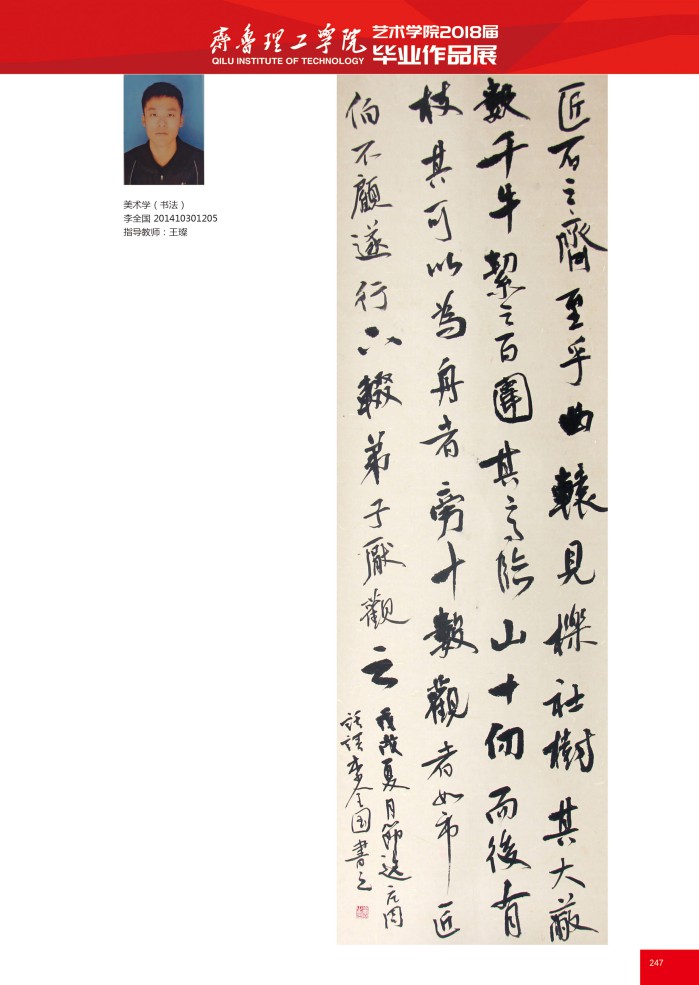 齊魯理工學院
QILU INSTITUTE OF TECHNOLOGY
艺术学院2018届
毕业作品展
美术学（书法）
李全国 201410301205
指导教师：王璨
匠石之齊至乎曲轅見櫟社樹其大蔽
數千牛絜之百圍其高臨山十仞而後有
枝其可以為舟者旁十數觀者如市匠
伯不顧遂行不輟弟子厭觀之
戊戌夏月節選莊周
李全国書之
247